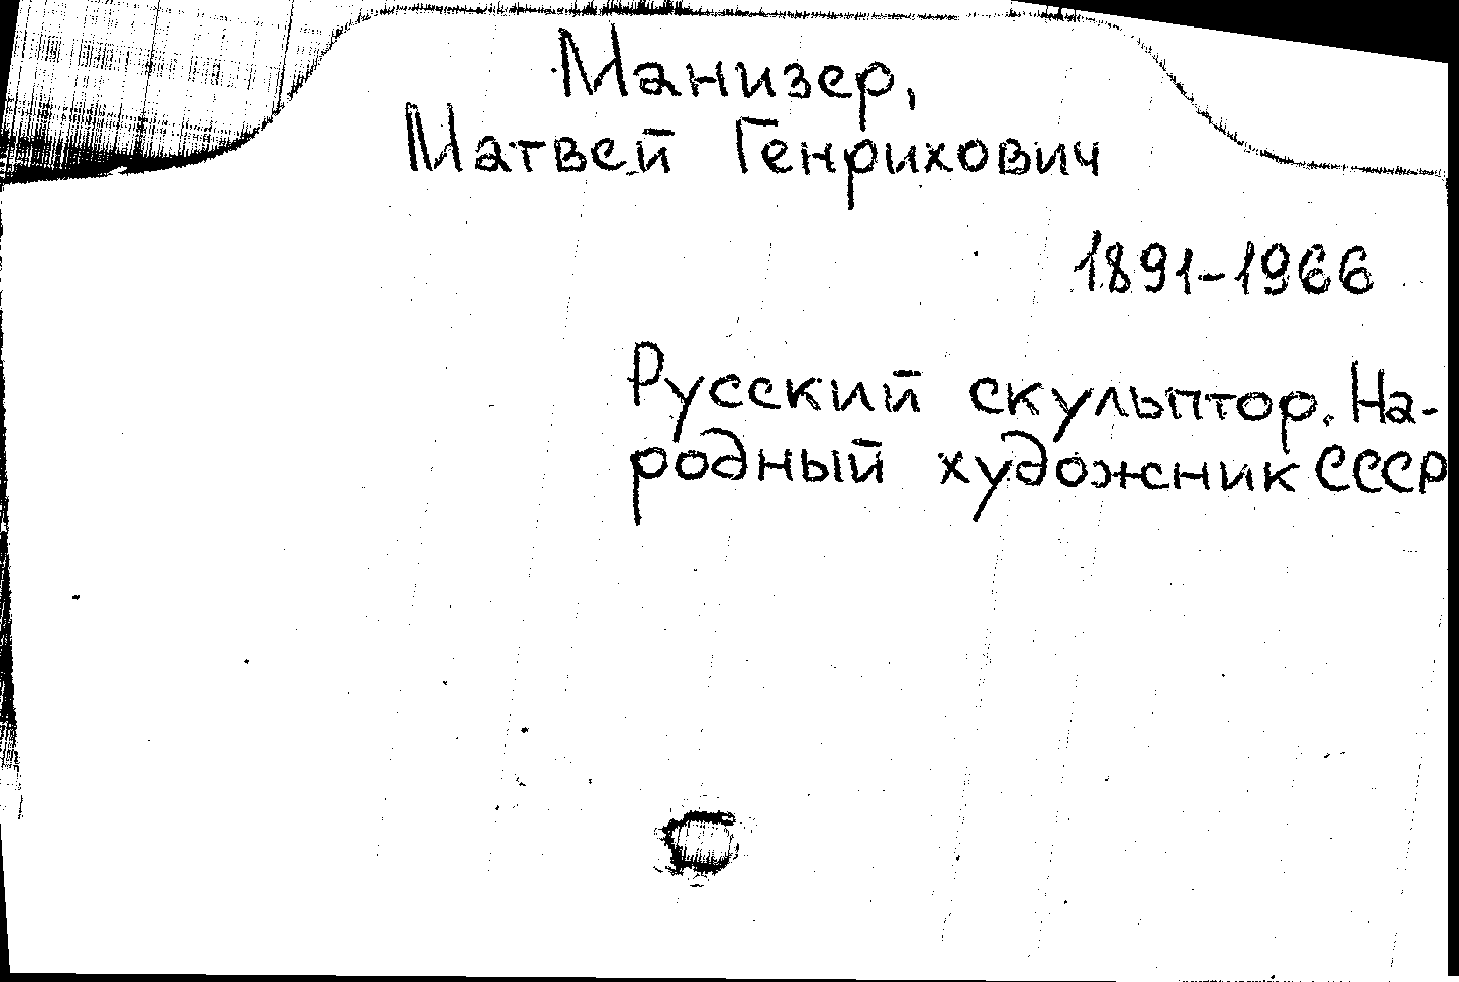 Манизер,
Матвей Генрихович
1891-1966
Русский скульптор. На-
родный художник СССР